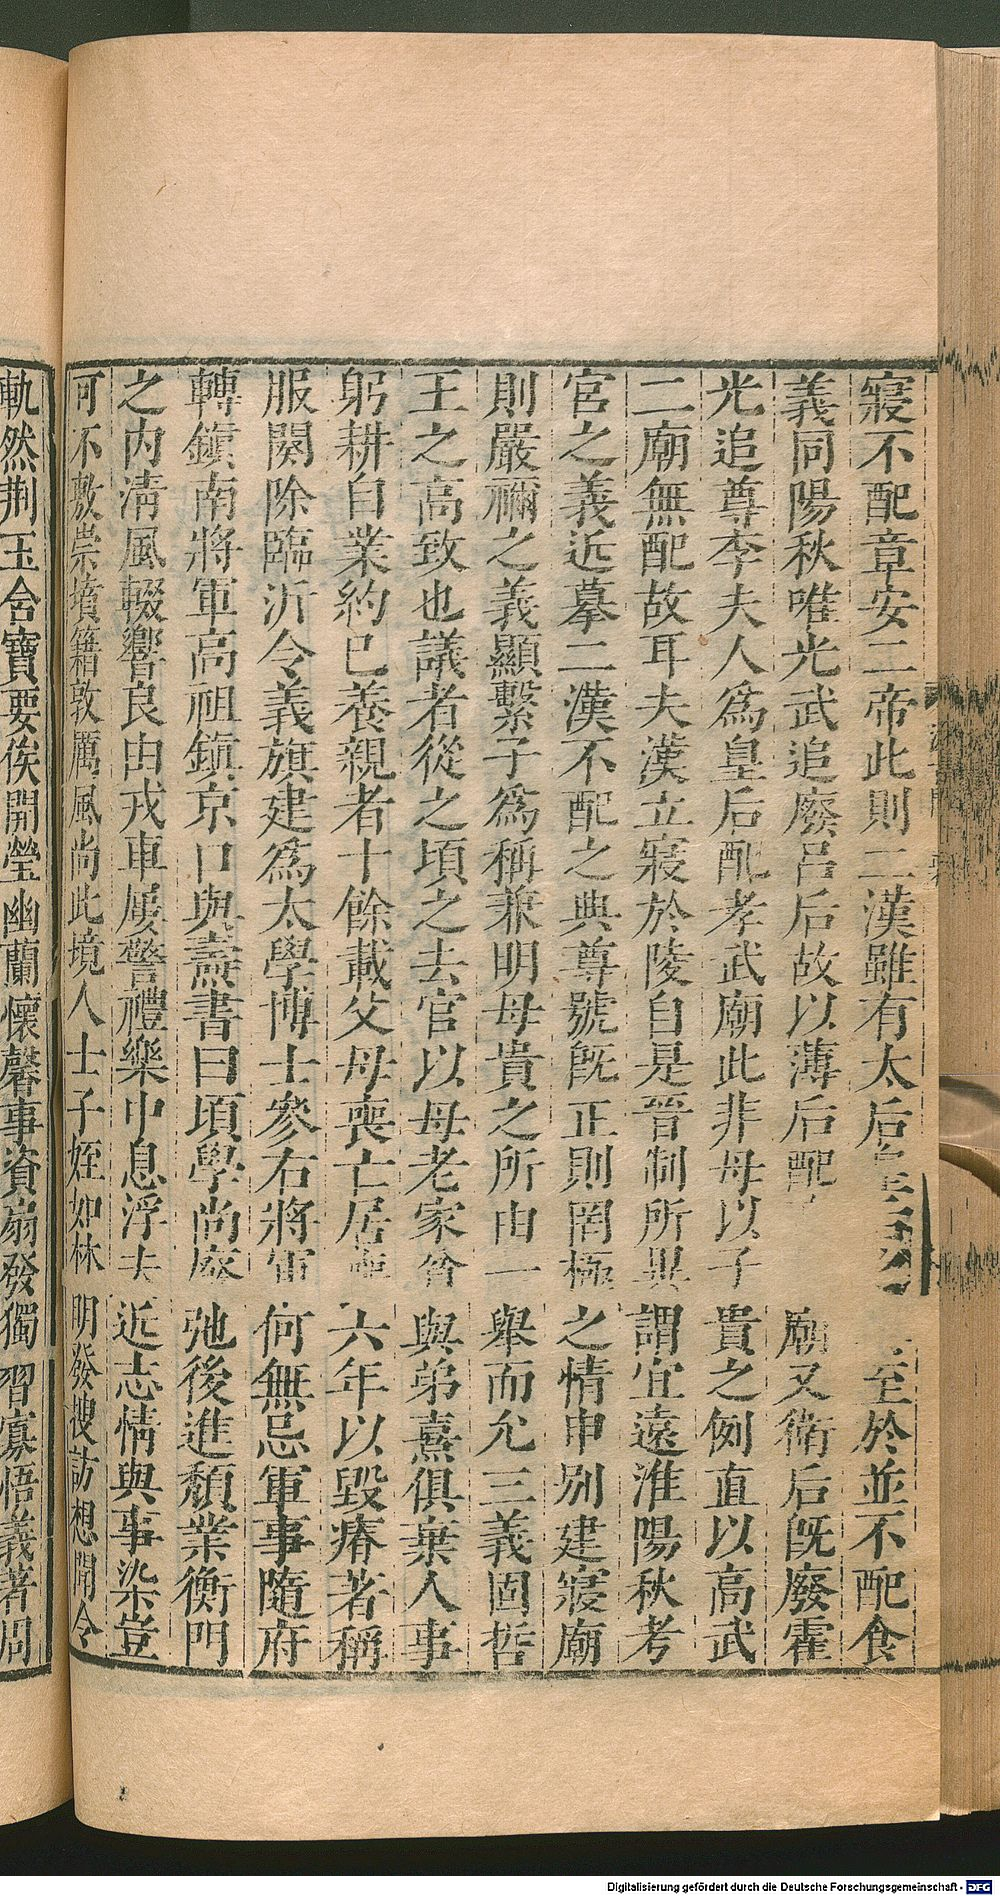 寢不配章安二帝此則二漢雖有太后至於並不配食
義同陽秋唯光武追廢呂后故以薄后配廟又衛后旣廢霍
光追尊李夫人爲皇后配孝武廟此非母以子貴之例直以高武
二廟無配故耳夫漢立寢於陵自是晉制所異謂宜遠淮陽秋考
宮之義近摹二漢不配之典尊號旣正則罔極之情申別建寢廟
則嚴禰之義顯繫子爲稱兼明母貴之所由一舉而允三義固哲
王之高致也議者從之頃之去官以母老家貧與弟熹俱棄人事
躬耕自業約己養親者十餘載父母喪亡居喪六年以毀瘠著稱
服闋除臨沂令義旗建爲太學博士參右將軍何無忌軍事隨府
轉鎮南將軍高祖鎮京口與燾書曰頃學尚廢弛後進頹業衡門
之內淸風輟響良由戎車屢警禮樂中息浮夫近志情與事染豈
可不敷崇墳籍敦厲風尚此境人士子姪如林明發搜訪想聞令
軌然荆玉含寶要俟開瑩幽蘭懷馨事資扇發獨習寡悟義著周
Digitalisierung gefördert durch die Deutsche Forschungsgemeinschaft - DFG